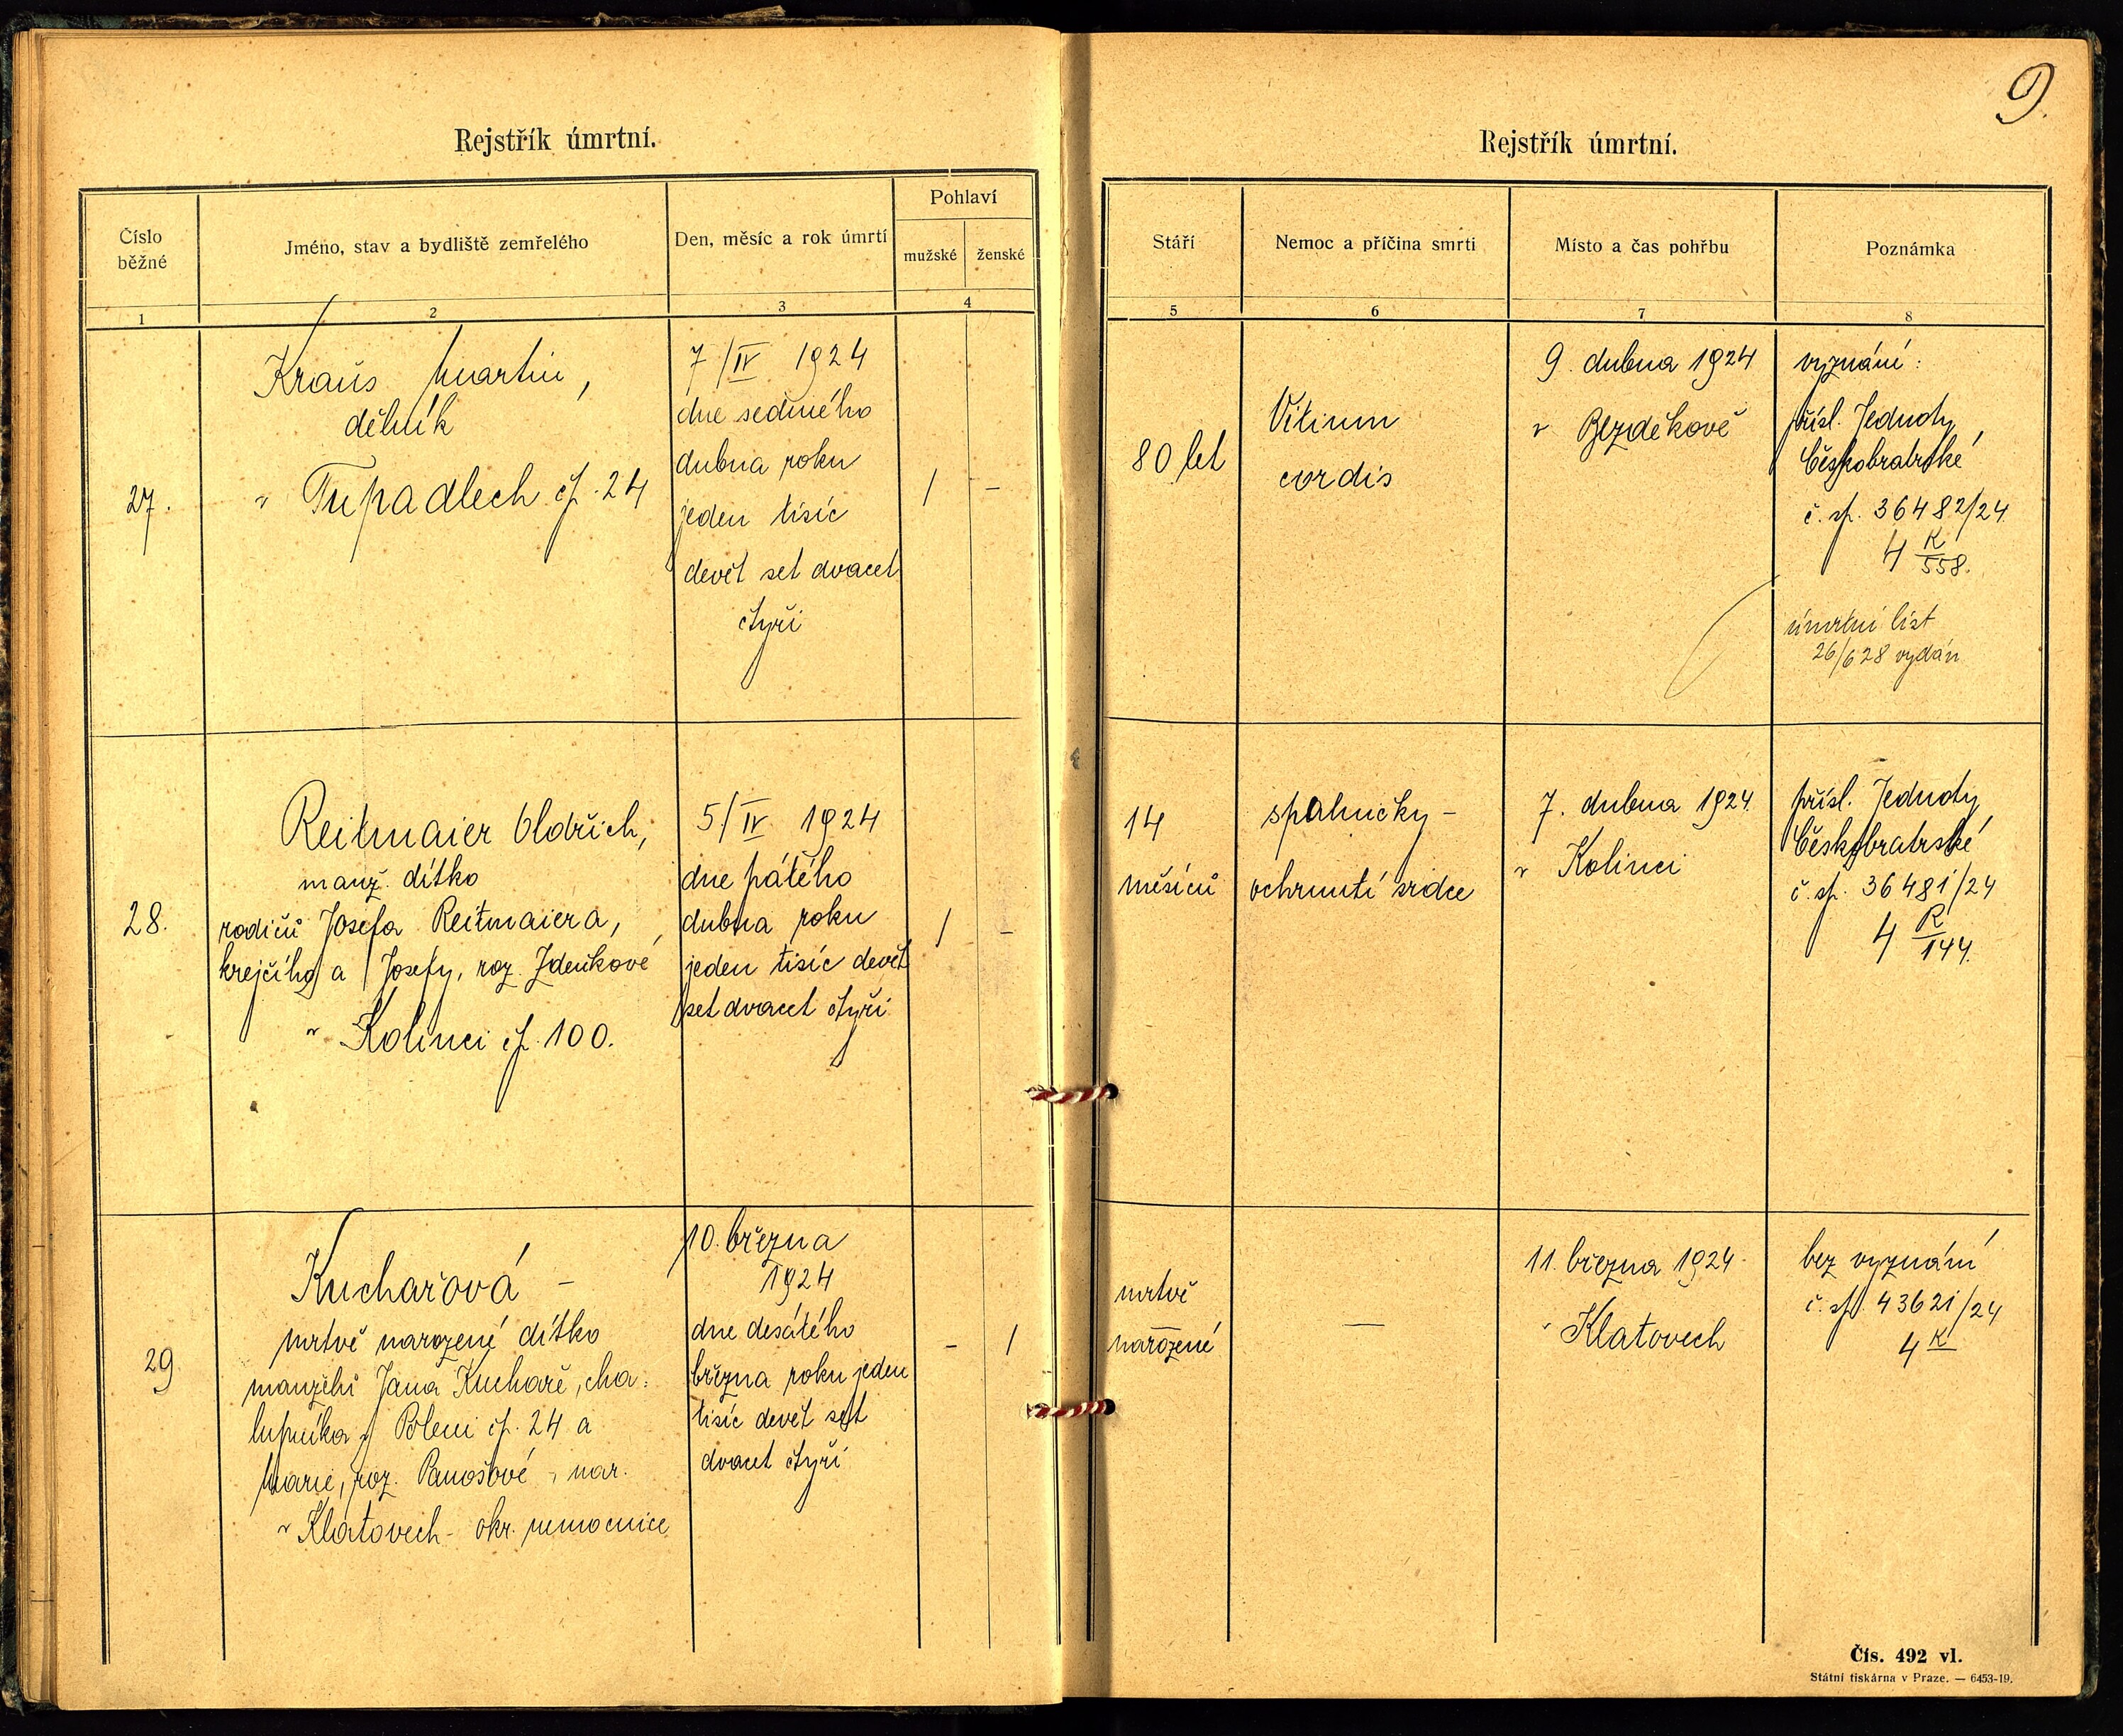 9.
Rejstřík úmrtní.
Číslo běžné
Jméno, stav a bydliště zemřelého
Den, měsíc a rok úmrtí
Pohlaví
mužské
ženské
1
2
3
4
27.
Kraus Martin,
dělník
v Tupadlech čp. 24
7/IV 1924
dne sedmého
dubna roku
jeden tisíc
devět set dvacet
čtyři
/
-
28.
Reitmaier Oldřich,
manž. dítko
rodičů Josefa Reitmaiera,
krejčího a Josefy, roz. Zdeňkové
v Kolinci čp. 100.
5/IV 1924
dne pátého
dubna roku
jeden tisíc devět
set dvacet čtyři
/
-
29
Kuchařová -
mrtvě narozené dítko
manželů Jana Kuchaře, cha:
lupníka z Poleni čp. 24 a
Marie, roz. Panošové, nar.
v Klatovech - okr. nemocnice
10. března
1924
dne desátého
března roku jeden
tisíc devět set
dvacet čtyři
-
/
Rejstřík úmrtní.
Stáří
Nemoc a příčina smrti
Místo a čas pohřbu
Poznámka
5
6
7
8
80 let
Vitium
cordis
9. dubna 1924
v Bezděkově
vyznání:
přísl. Jednoty
Českobratrské
č. sp. 36482/24
4 K/558.
úmrtní list
26/6 28 vydán
14
měsíců
spalničky -
ochrnutí srdce
7. dubna 1924
v Kolinci
přísl. Jednoty
Českobratrské
č. sp. 36481/24
4 R/144.
mrtvě
narozené
—
11. března 1924
v Klatovech
bez vyznání
č. sp. 43621/24
4 K
Čís. 492 vl.
Státní tiskárna v Praze. — 6453-19.